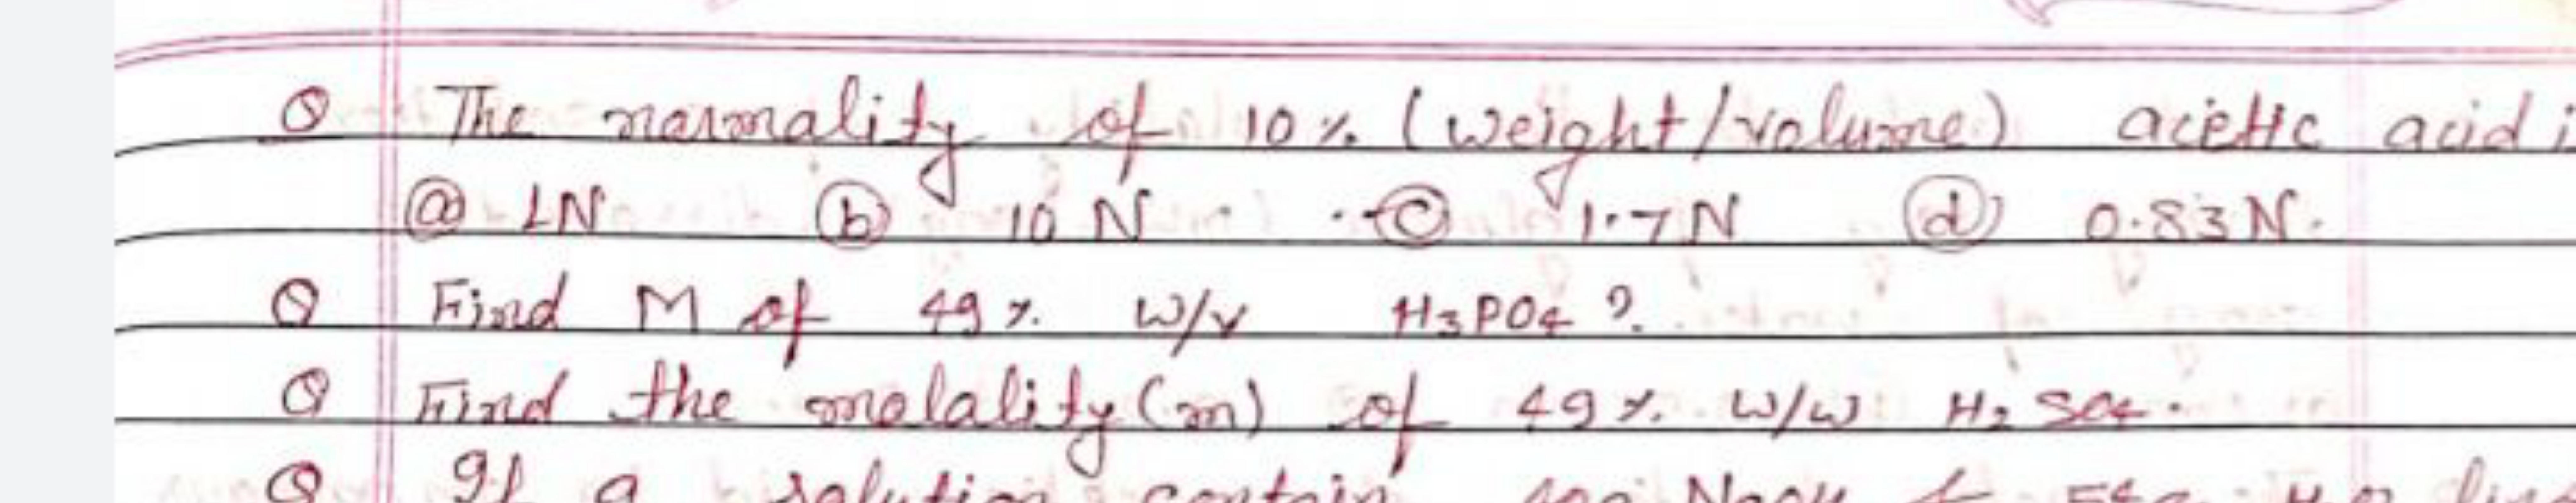 Q The normality of 10% (weight/volume) acetic acid i
(a) 1N (b) 10 N (c) 1.7N (d) 0.83N.
Q Find M of 49% W/v H3PO4 ?
Q Find the molality(m) of 49% W/W H2SO4.
Q If a solution contain NaOH &